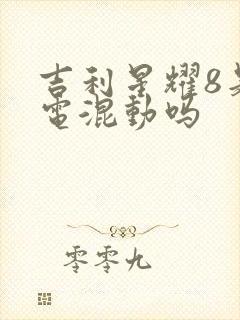 吉利星耀8是
電混動吗
零零九